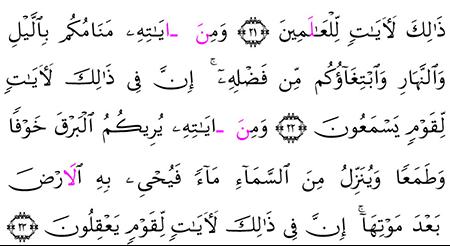 ذَٰلِكَ لَأٓيَٰتٖ لِّلۡعَٰلَمِينَ ۝٢١ وَمِنَ ـايَٰتِهِۦ مَنَامُكُم بِٱلَّيۡلِ
وَٱلنَّهَارِ وَٱبۡتِغَآؤُكُم مِّن فَضۡلِهِۦٓۚ إِنَّ فِي ذَٰلِكَ لَأٓيَٰتٖ
لِّقَوۡمٖ يَسۡمَعُونَ ۝٢٢ وَمِنَ ـايَٰتِهِۦ يُرِيكُمُ ٱلۡبَرۡقَ خَوۡفٗا
وَطَمَعٗا وَيُنَزِّلُ مِنَ ٱلسَّمَآءِ مَآءٗ فَيُحۡيِۦ بِهِ ٱلَارۡضَ
بَعۡدَ مَوۡتِهَآۚ إِنَّ فِي ذَٰلِكَ لَأٓيَٰتٖ لِّقَوۡمٖ يَعۡقِلُونَ ۝٢٣